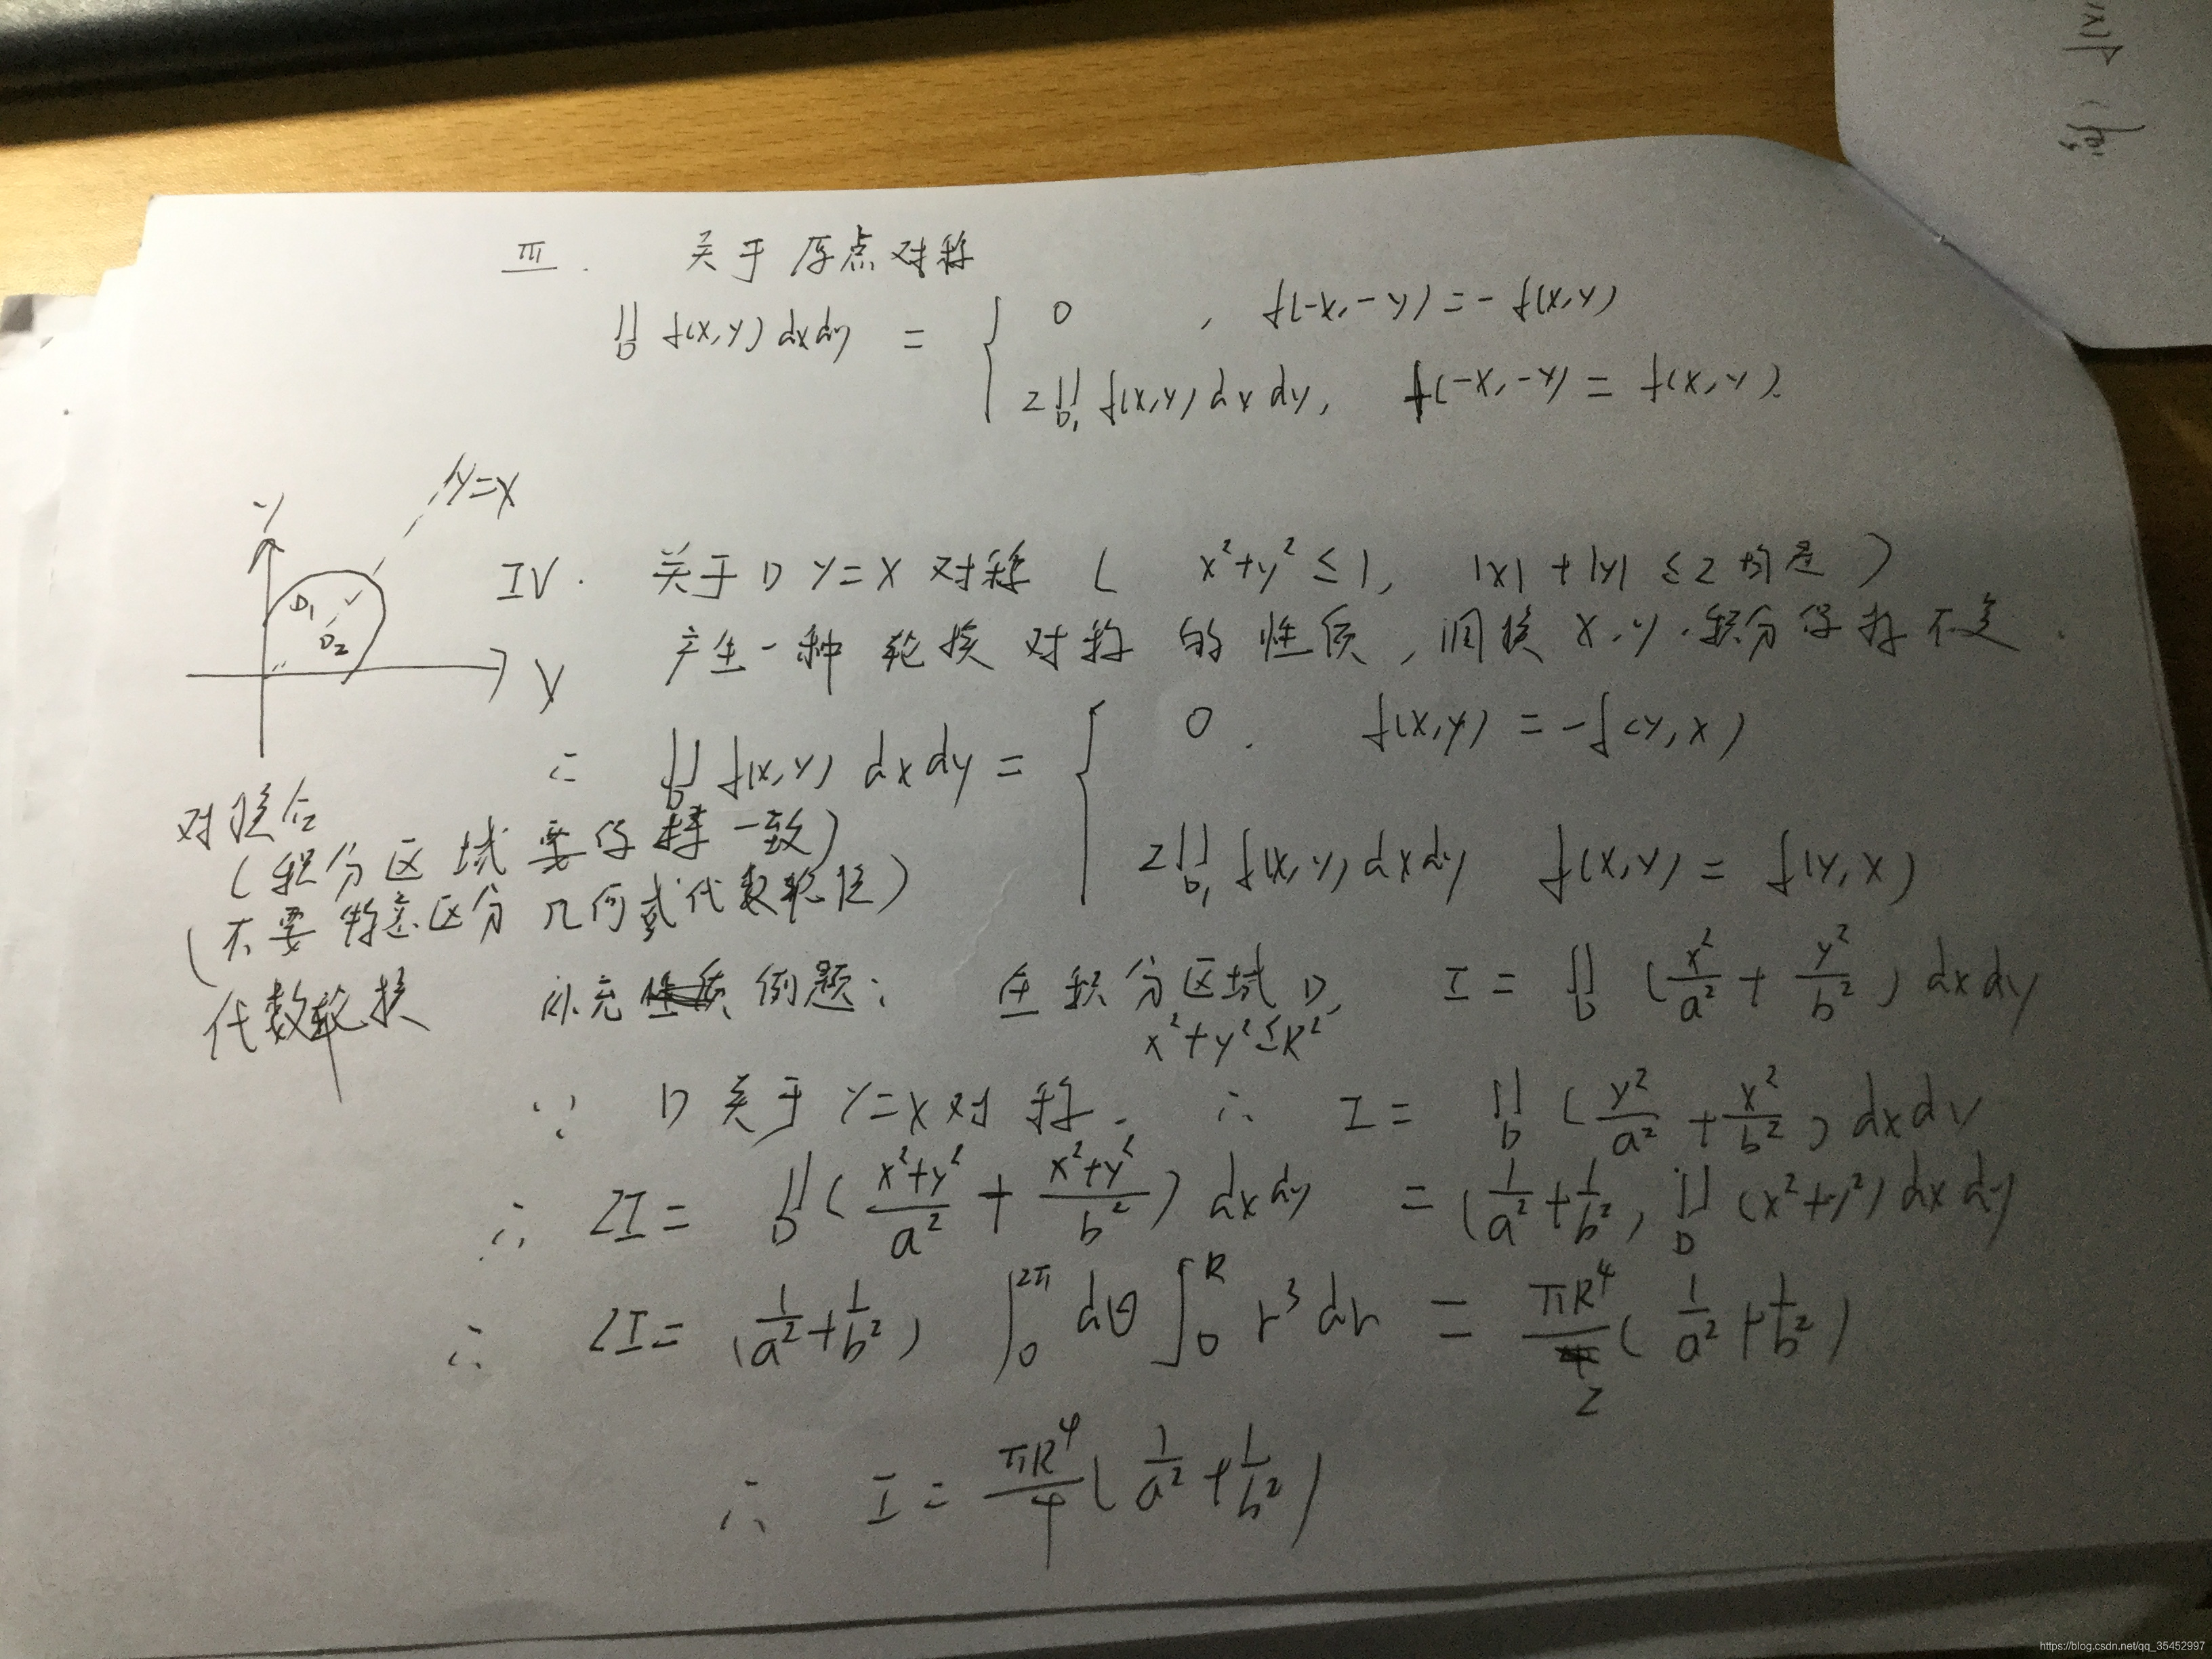 III. 关于原点对称
∬_D f(x,y) dxdy = { 0 , f(-x,-y) = -f(x,y)
2∬_{D₁} f(x,y) dxdy, f(-x,-y) = f(x,y).
y=x
y
D₁
D₂
IV. 关于D y=x 对称 ( x²+y² ≤ 1, |x|+|y| ≤ 2 均是 )
产生一种轮换对称的性质, 调换 x.y. 积分保持不变.
∴ ∬_D f(x,y) dxdy = { 0. f(x,y) = -f(y,x)
2∬_{D₁} f(x,y) dxdy f(x,y) = f(y,x)
(积分区域要保持一致)
(不要特意区分几何或代数轮换)
代数轮换
补充例题: 在积分区域 D, I = ∬_D (x²/a² + y²/b²) dxdy
x²+y²≤R²
∵ D关于y=x对称. ∴ I = ∬_D (y²/a² + x²/b²) dxdy
∴ 2I = ∬_D ((x²+y²)/a² + (x²+y²)/b²) dxdy = (1/a² + 1/b²) ∬_D (x²+y²) dxdy
∴ 2I = (1/a² + 1/b²) ∫₀^{2π} dθ ∫₀^R r³ dr = πR⁴/2 (1/a² + 1/b²)
∴ I = πR⁴/4 (1/a² + 1/b²)
https://blog.csdn.net/qq_35452997